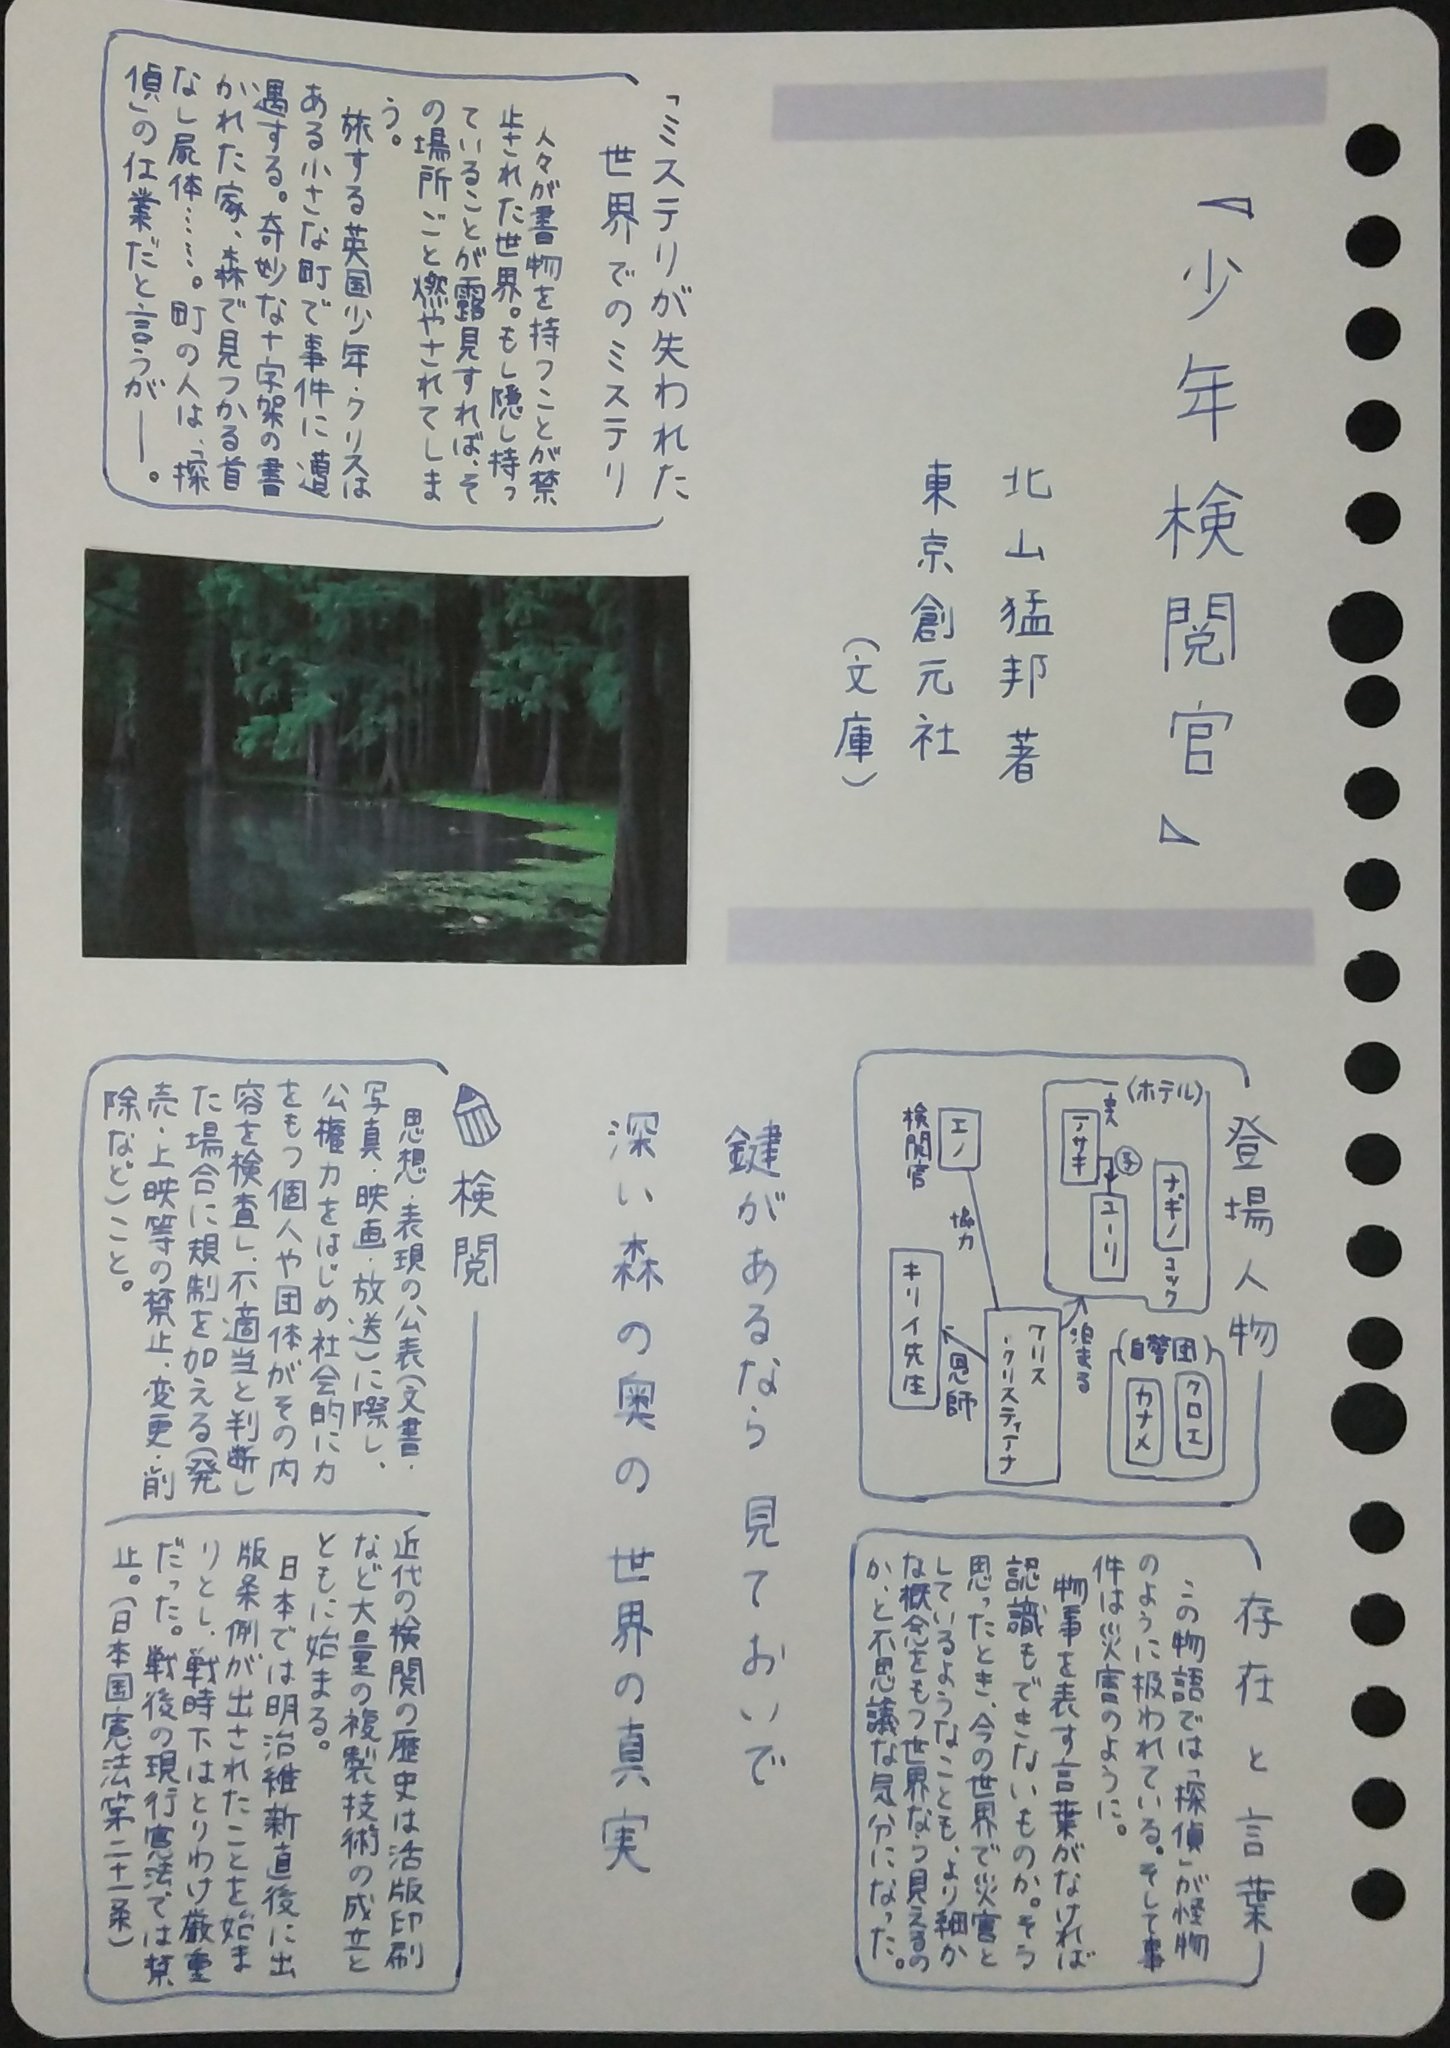 『少年検閲官』
北山猛邦 著
東京創元社
(文庫)
「ミステリが失われた
世界でのミステリ
人々が書物を持つことが禁
止された世界。もし隠し持っ
ていることが露見すれば、そ
の場所ごと燃やされてしま
う。
旅する英国少年・クリスは
ある小さな町で事件に遭
遇する。奇妙な十字架の書
かれた家、森で見つかる首
なし屍体……。町の人は、「探
偵」の仕業だと言うが――。
登場人物
(ホテル)
ナギノ
コック
主人
アサギ
子
ユーリ
(自警団)
クロエ
カナメ
泊まる
クリス
・クリスティアナ
恩師
キリイ先生
協力
エノ
検閲官
存在と言葉
この物語では「探偵」が怪物
のように扱われている。そして事
件は災害のように。
物事を表す言葉がなければ
認識もできないものか。そう
思ったとき、今の世界で災害と
しているようなことも、より細か
な概念をもつ世界なら見えるの
か、と不思議な気分になった。
鍵があるなら 見ておいで
深い森の奥の 世界の真実
検閲
思想・表現の公表(文書・
写真・映画・放送)に際し、
公権力をはじめ社会的に力
をもつ個人や団体がその内
容を検査し、不適当と判断し
た場合に規制を加える(発
売・上映等の禁止、変更・削
除など)こと。
近代の検閲の歴史は活版印刷
など大量の複製技術の成立と
ともに始まる。
日本では明治維新直後に出
版条例が出されたことを始ま
りとし、戦時下はとりわけ厳重
だった。戦後の現行憲法では禁
止。(日本国憲法第二十一条)